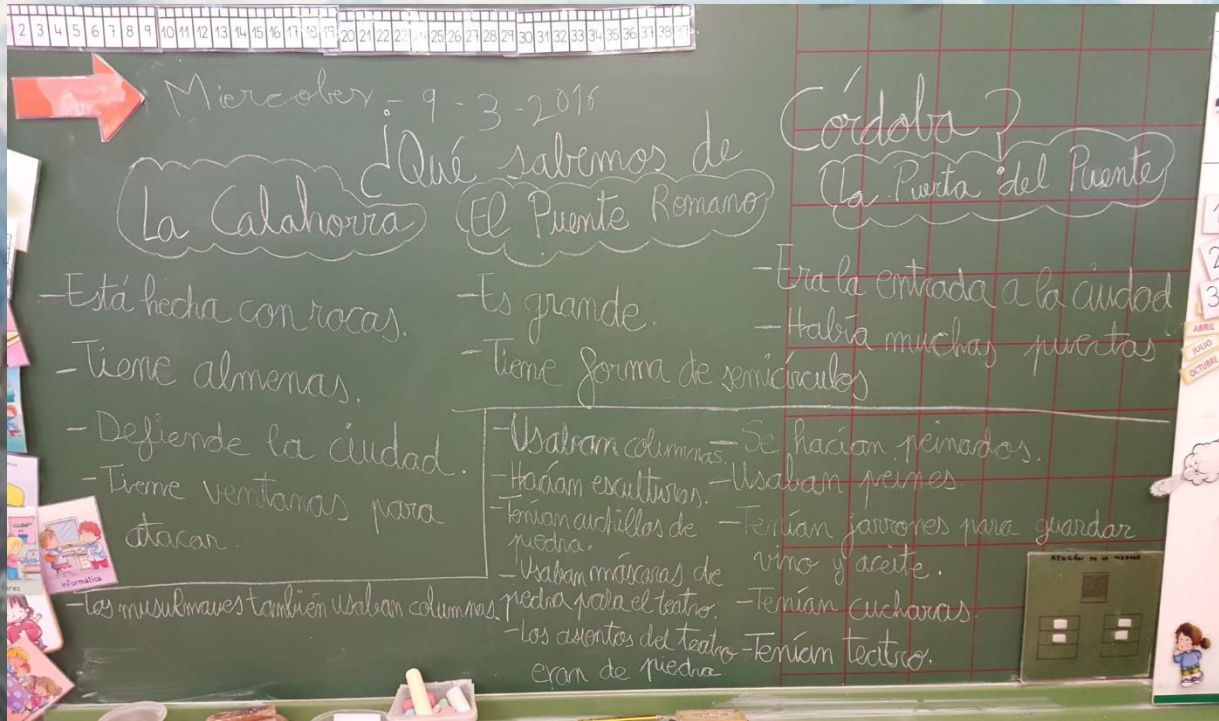 2 3 4 5 6 7 8 9 10 11 12 13 14 15 16 17 18 19 20 21 22 23 24 25 26 27 28 29 30 31 32 33 34 35 36 37 38
Miercoles - 9 - 3 - 2016
¿Qué sabemos de Córdoba?
La Calahorra
-Está hecha con rocas.
-Tiene almenas.
-Defiende la ciudad.
-Tiene ventanas para
atacar.
El Puente Romano
-Es grande.
-Tiene forma de semicírculos
La Puerta del Puente
-Era la entrada a la ciudad
-Había muchas puertas
-Los musulmanes también usaban columnas.
-Usaban columnas.
-Hacían esculturas.
-Tenían cuchillos de
piedra.
-Usaban máscaras de
piedra para el teatro.
-Los asientos del teatro
eran de piedra
-Se hacían peinados.
-Usaban peines
-Tenían jarrones para guardar
vino y aceite.
-Tenían cucharas.
-Tenían teatro.
informática
ABRIL
JULIO
OCTUBRE
2
3